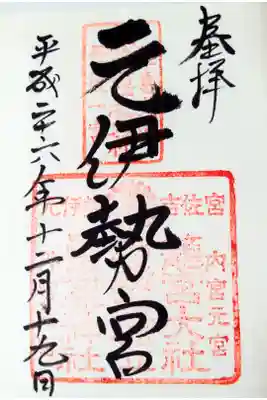 奉拝
元伊勢宮
平成二十六年十二月十九日
内宮元宮